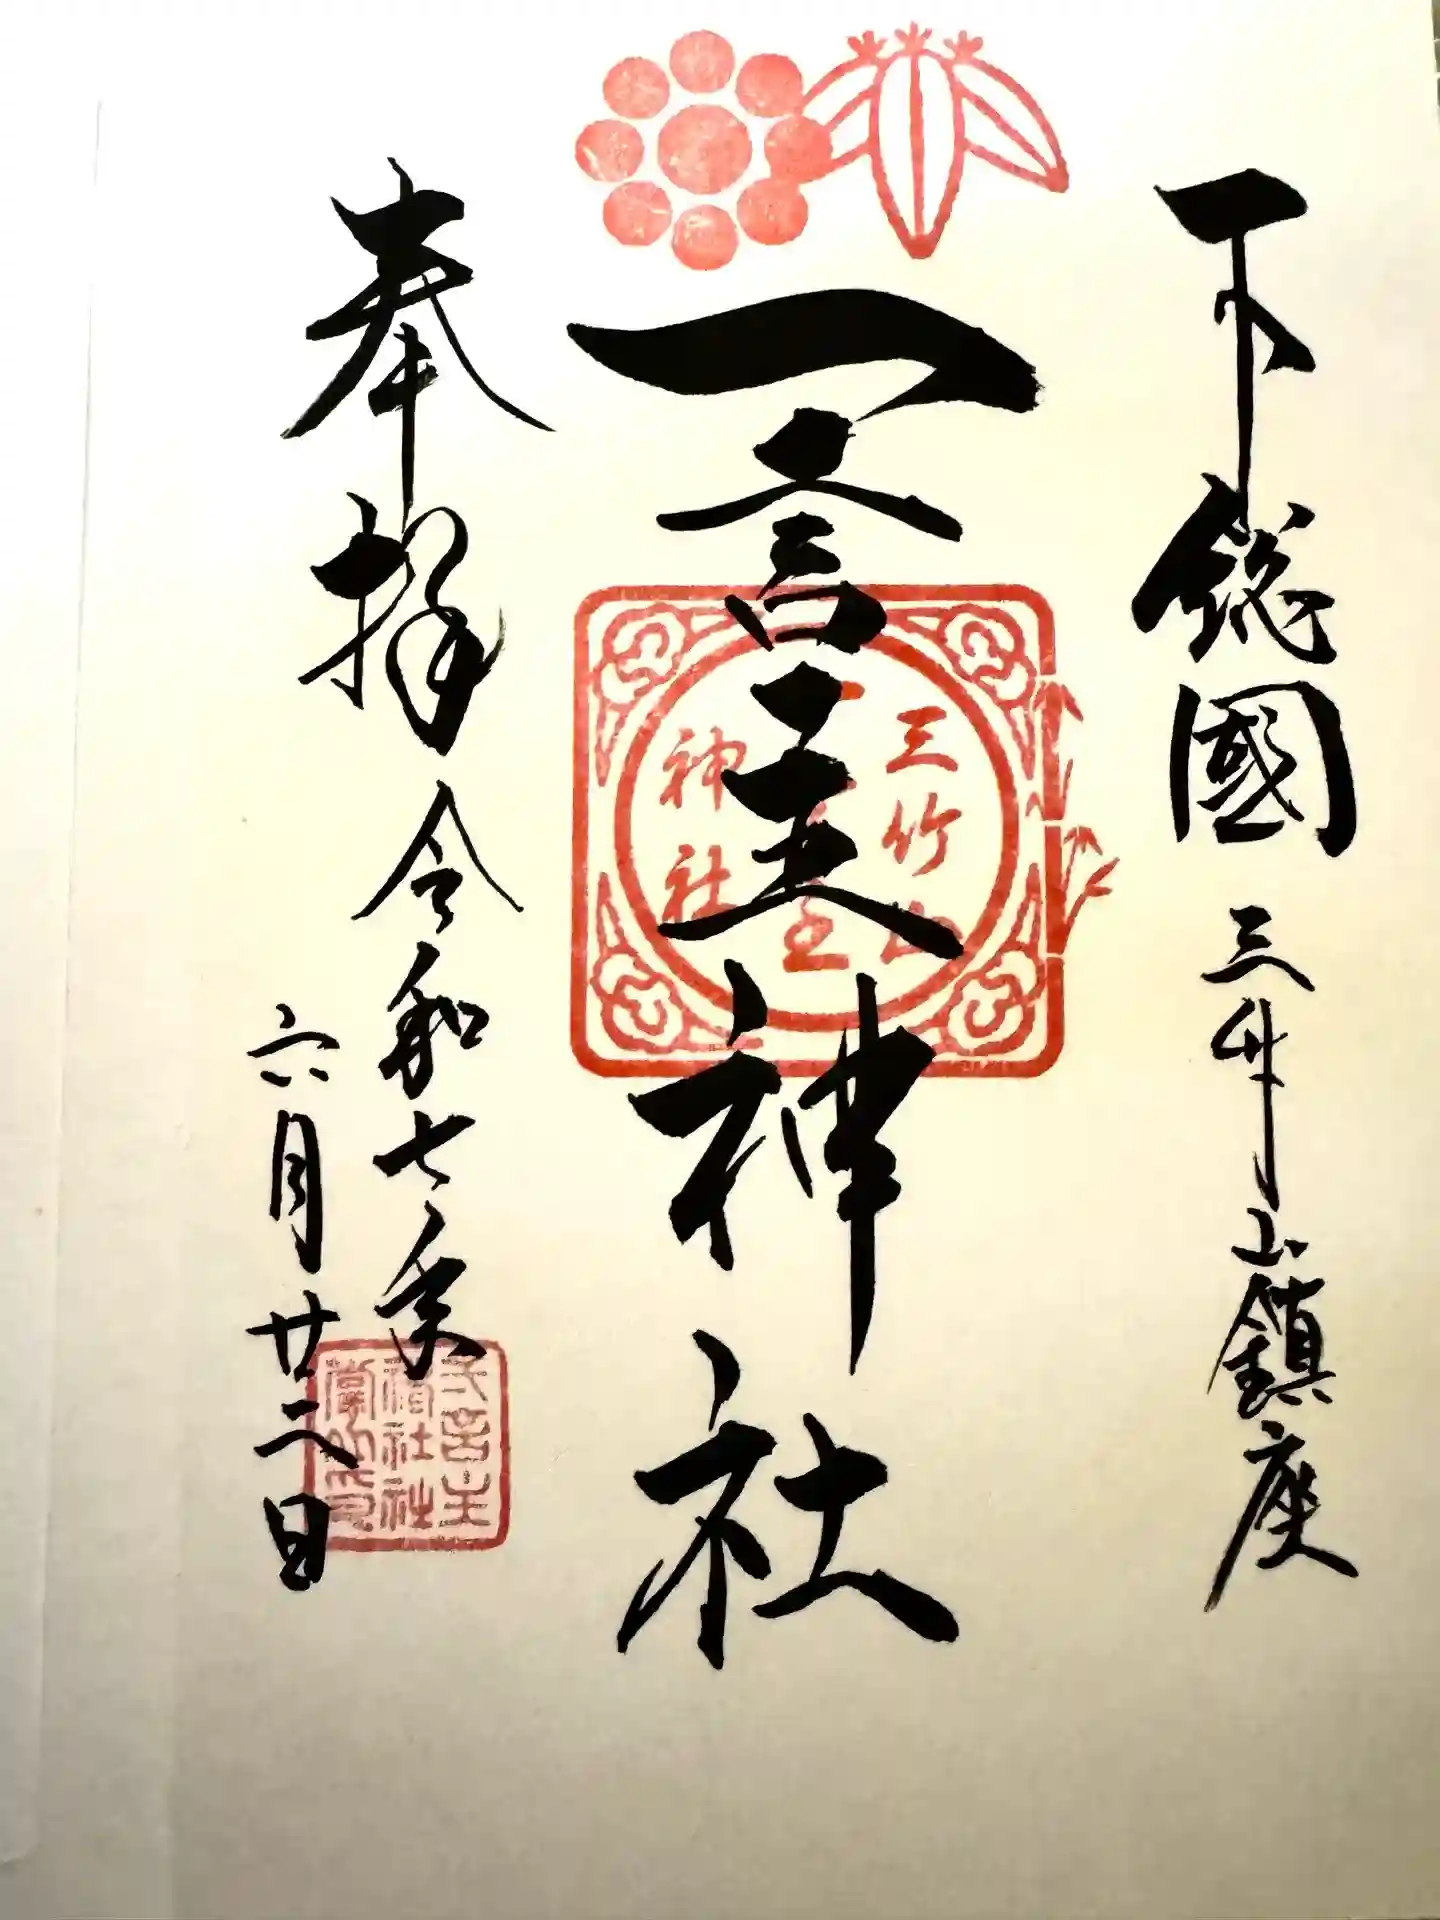 下総國 三竹山鎮座
一言主神社
三竹山
一言主
神社
奉拝 令和七年
六月廿二日